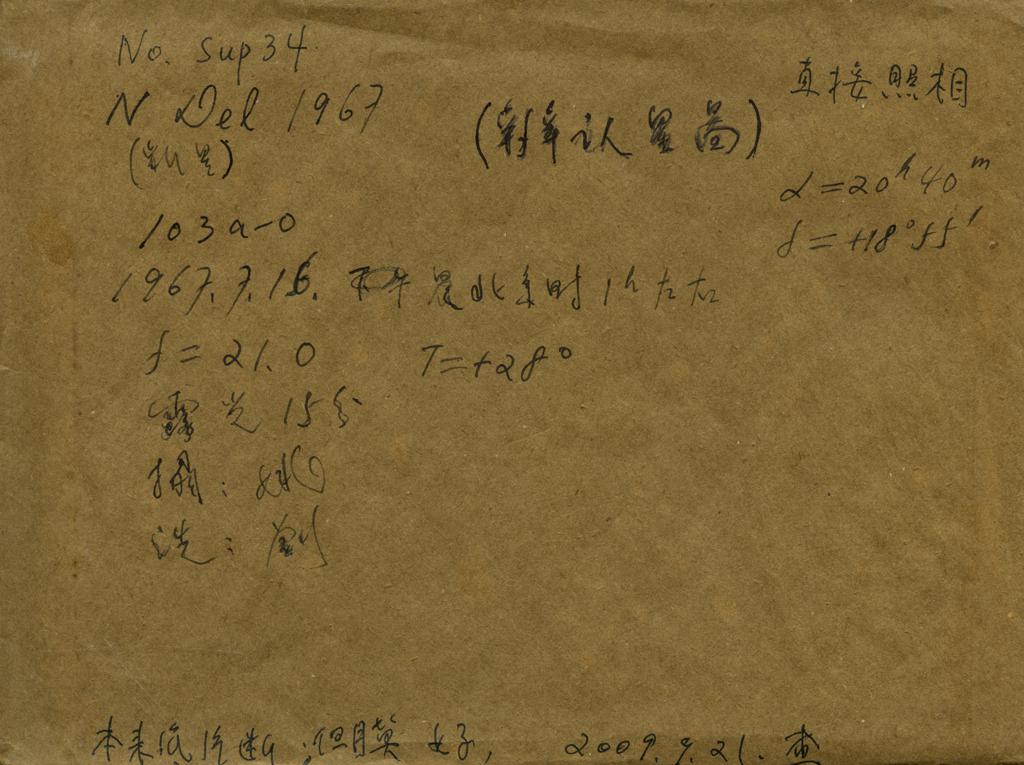 No. sup34
直接照相
N Del 1967
(证认星图)
(新星)
α=20ʰ40ᵐ
δ=+18°55′
103a-O
1967.7.16. 晨北京时1h左右
f=21.0 T=+28°
露光15分
摄:姚
洗:刘
本来底片 ,但膜 好, 2009.9.21.查